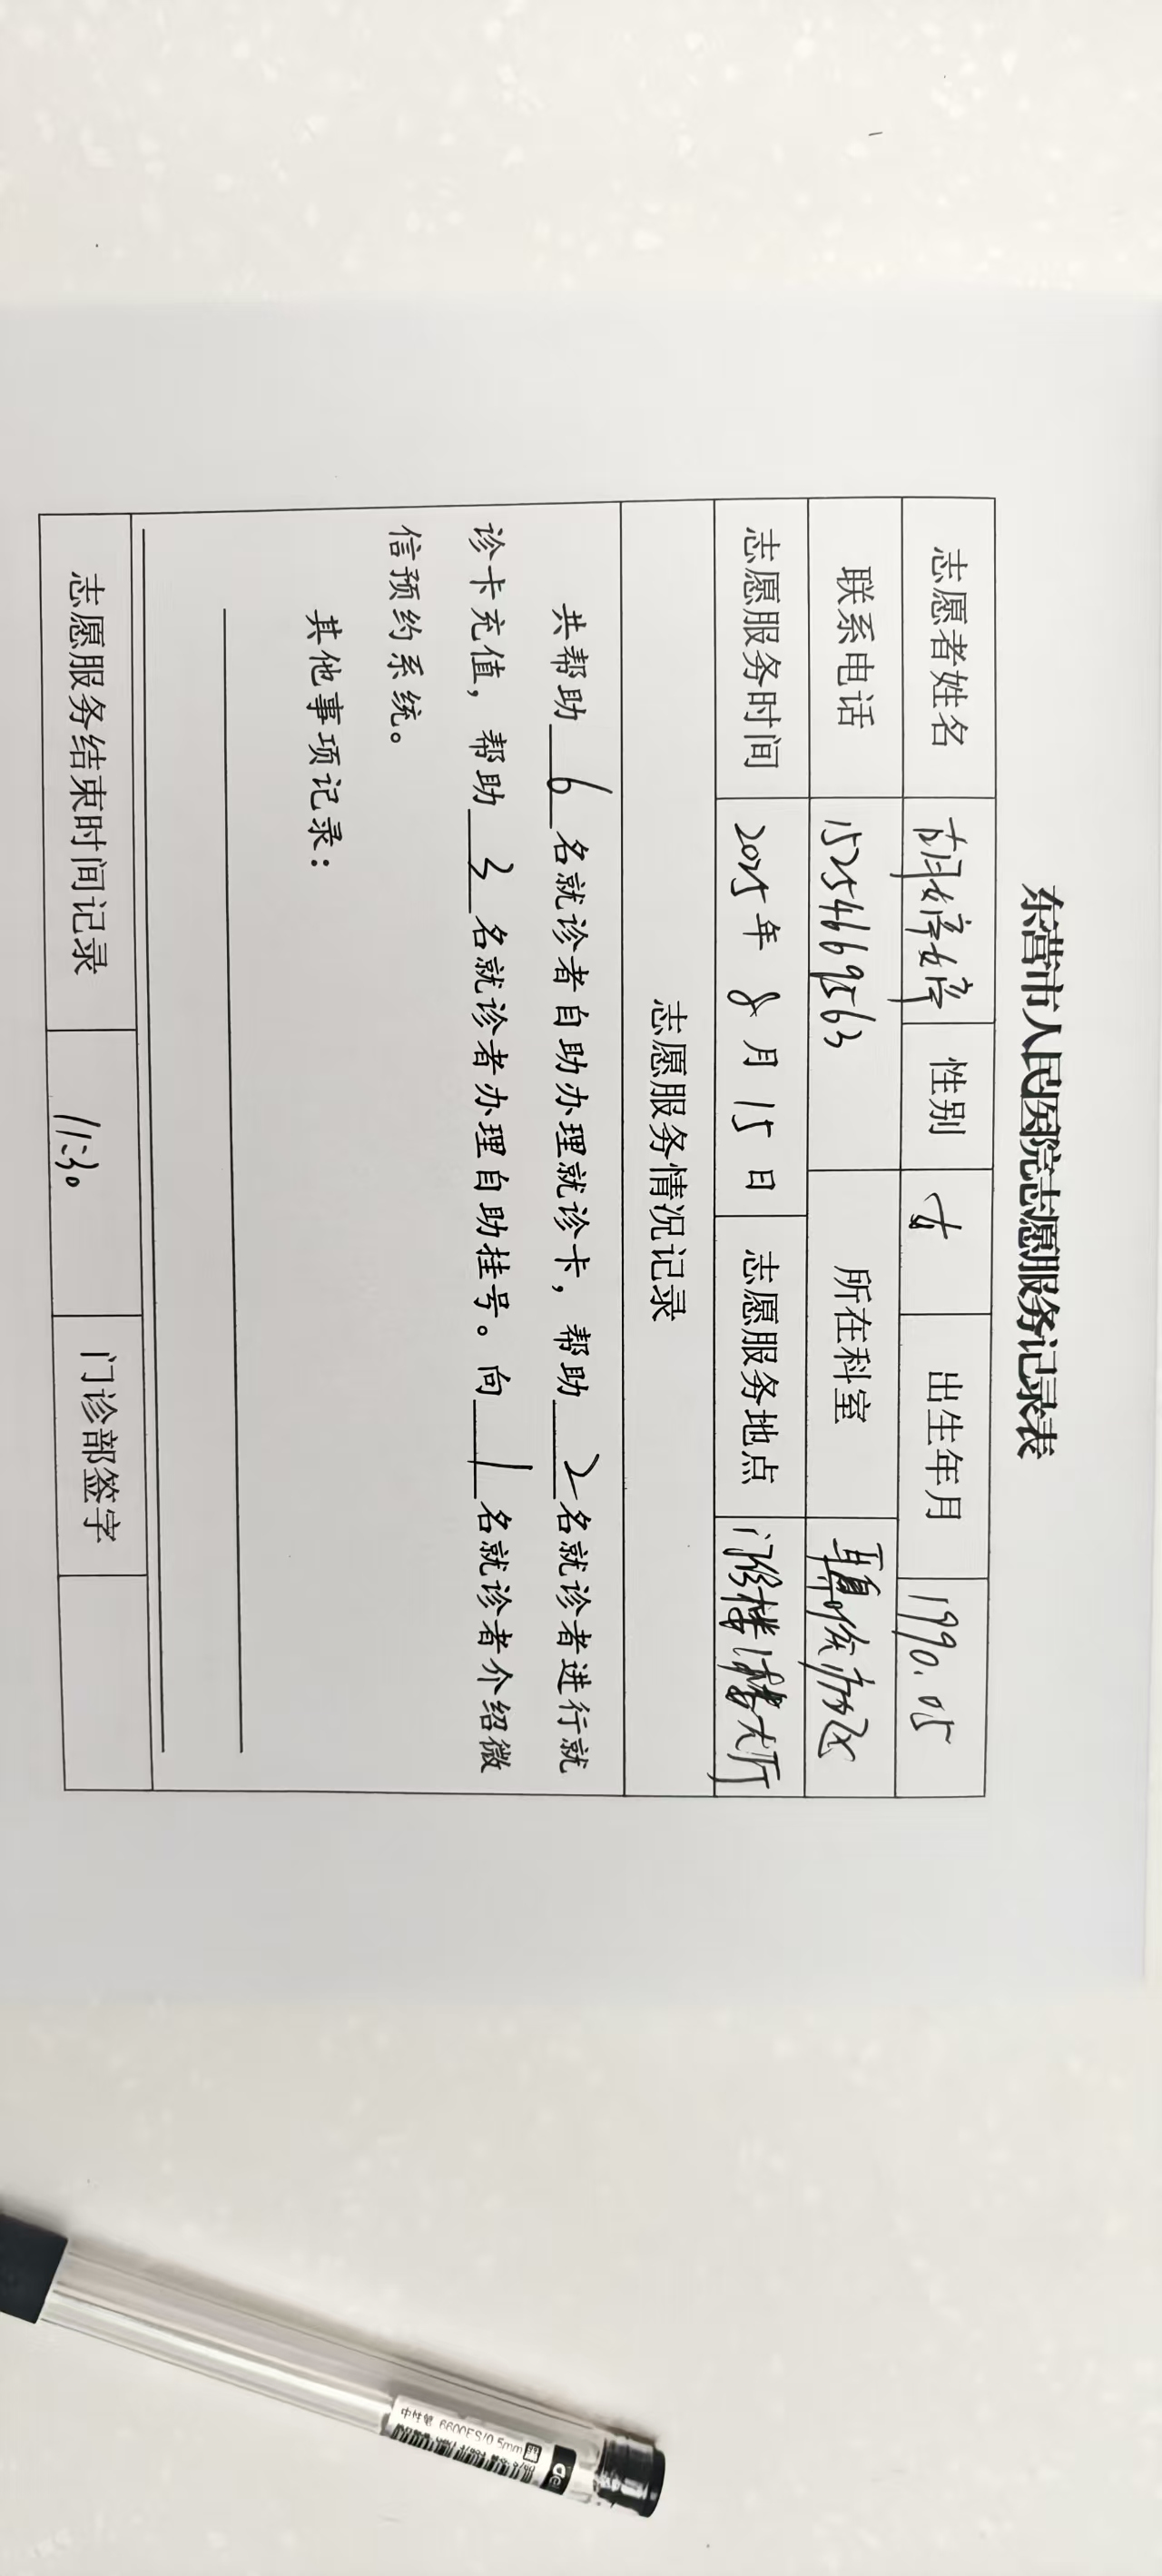 东营市人民医院志愿服务记录表
志愿者姓名 胡婷婷 性别 女 出生年月 1990.05
联系电话 15254669563 所在科室
志愿服务时间 2025年8月15日 志愿服务地点 大厅
志愿服务情况记录
共帮助6名就诊者自助办理就诊卡，帮助2名就诊者进行就
诊卡充值，帮助3名就诊者办理自助挂号。向1名就诊者介绍微
信预约系统。
其他事项记录：
志愿服务结束时间记录 11:30 门诊部签字
中性笔 6600ES/0.5mm